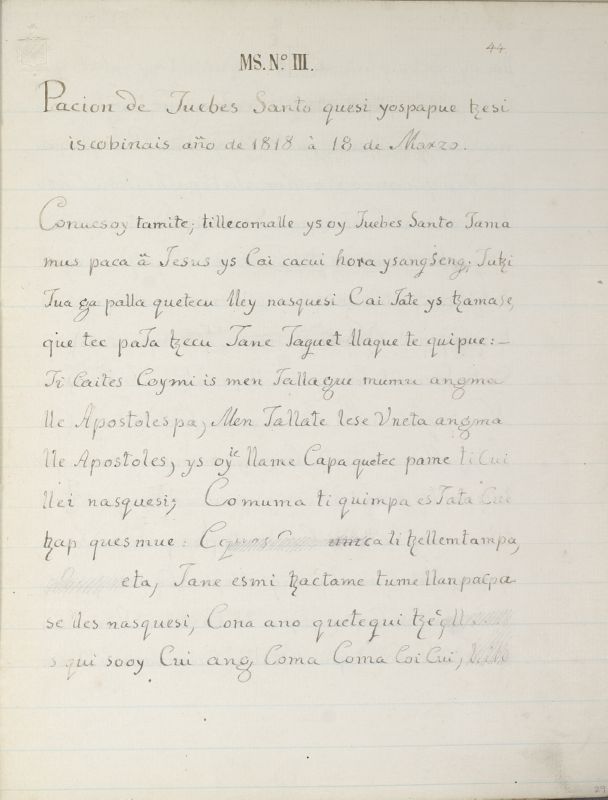 44
MS. N.º III.
Pacion de Juebes Santo quesi yospapue ꜩesi
iscobinais año de 1818 à 18 de Marzo.
Conucsoy tamite; tillecomalle ysoy Juebes Santo Jama
mus paca ä Jesus ys Cai cacui hora ysangSeng; Jutzi
Jua ga palla quetecu lley nasquesi Cai Tate ys ꜩamase,
que tec paTa ꜩecu Tane Taguet llaque te quipue: –
Ti Caites Coymi is men Tallague mumu angma
lle Apostoles pa, Men Tallate lese Vneta angma
lle Apostoles, ys oyie llame Capa quetec pame ti Cui
llei nasquesi; Comuma ti quimpa es Tata Cui
ꜩap quesmue: ca ti ꜩellemtampa,
eta, Tane esmi ꜩactame tume llanpacpa
se lles nasquesi, Cona ano quetequi
s qui sooy Cui ang, Coma Coma Coi Cui,